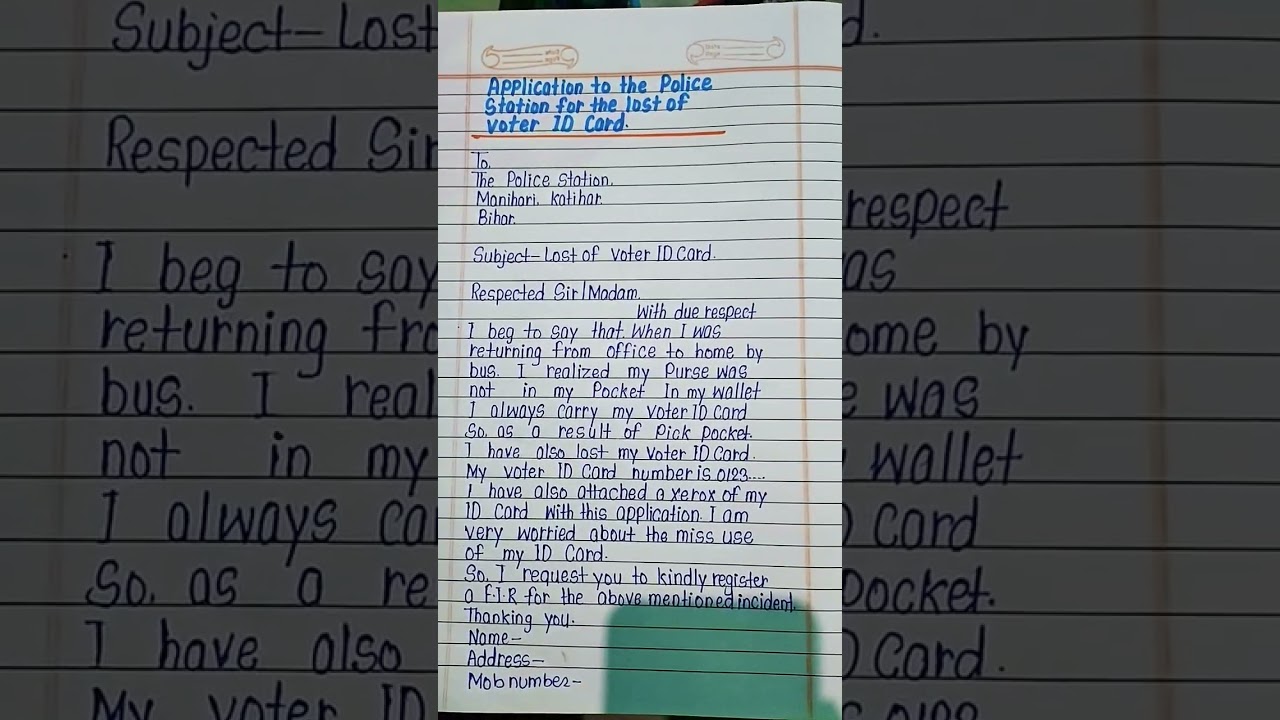 Application to the Police
Station for the lost of
voter ID Card.
To,
The Police Station.
Manihari. Katihar.
Bihar.
Subject- Lost of Voter ID Card.
Respected Sir/Madam.
With due respect
I beg to say that. When I was
returning from office to home by
bus. I realized my Purse was
not in my Pocket In my wallet
I always carry my Voter ID Card
So. as a result of Pick pocket.
I have also lost my Voter ID Card.
My voter ID Card number is 0123....
I have also attached a xerox of my
ID Card with this application. I am
very worried about the miss use
of my ID Card.
So, I request you to kindly register
a F.I.R for the above mentioned incident.
Thanking you.
Name-
Address-
Mob number-